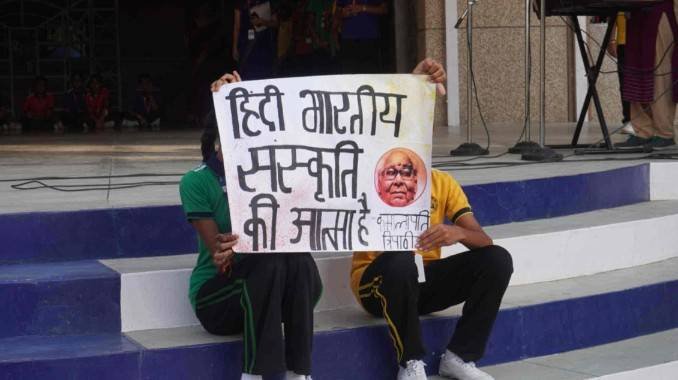 हिंदी भारतीय
संस्कृति
की आत्मा है
कमलापति
त्रिपाठी